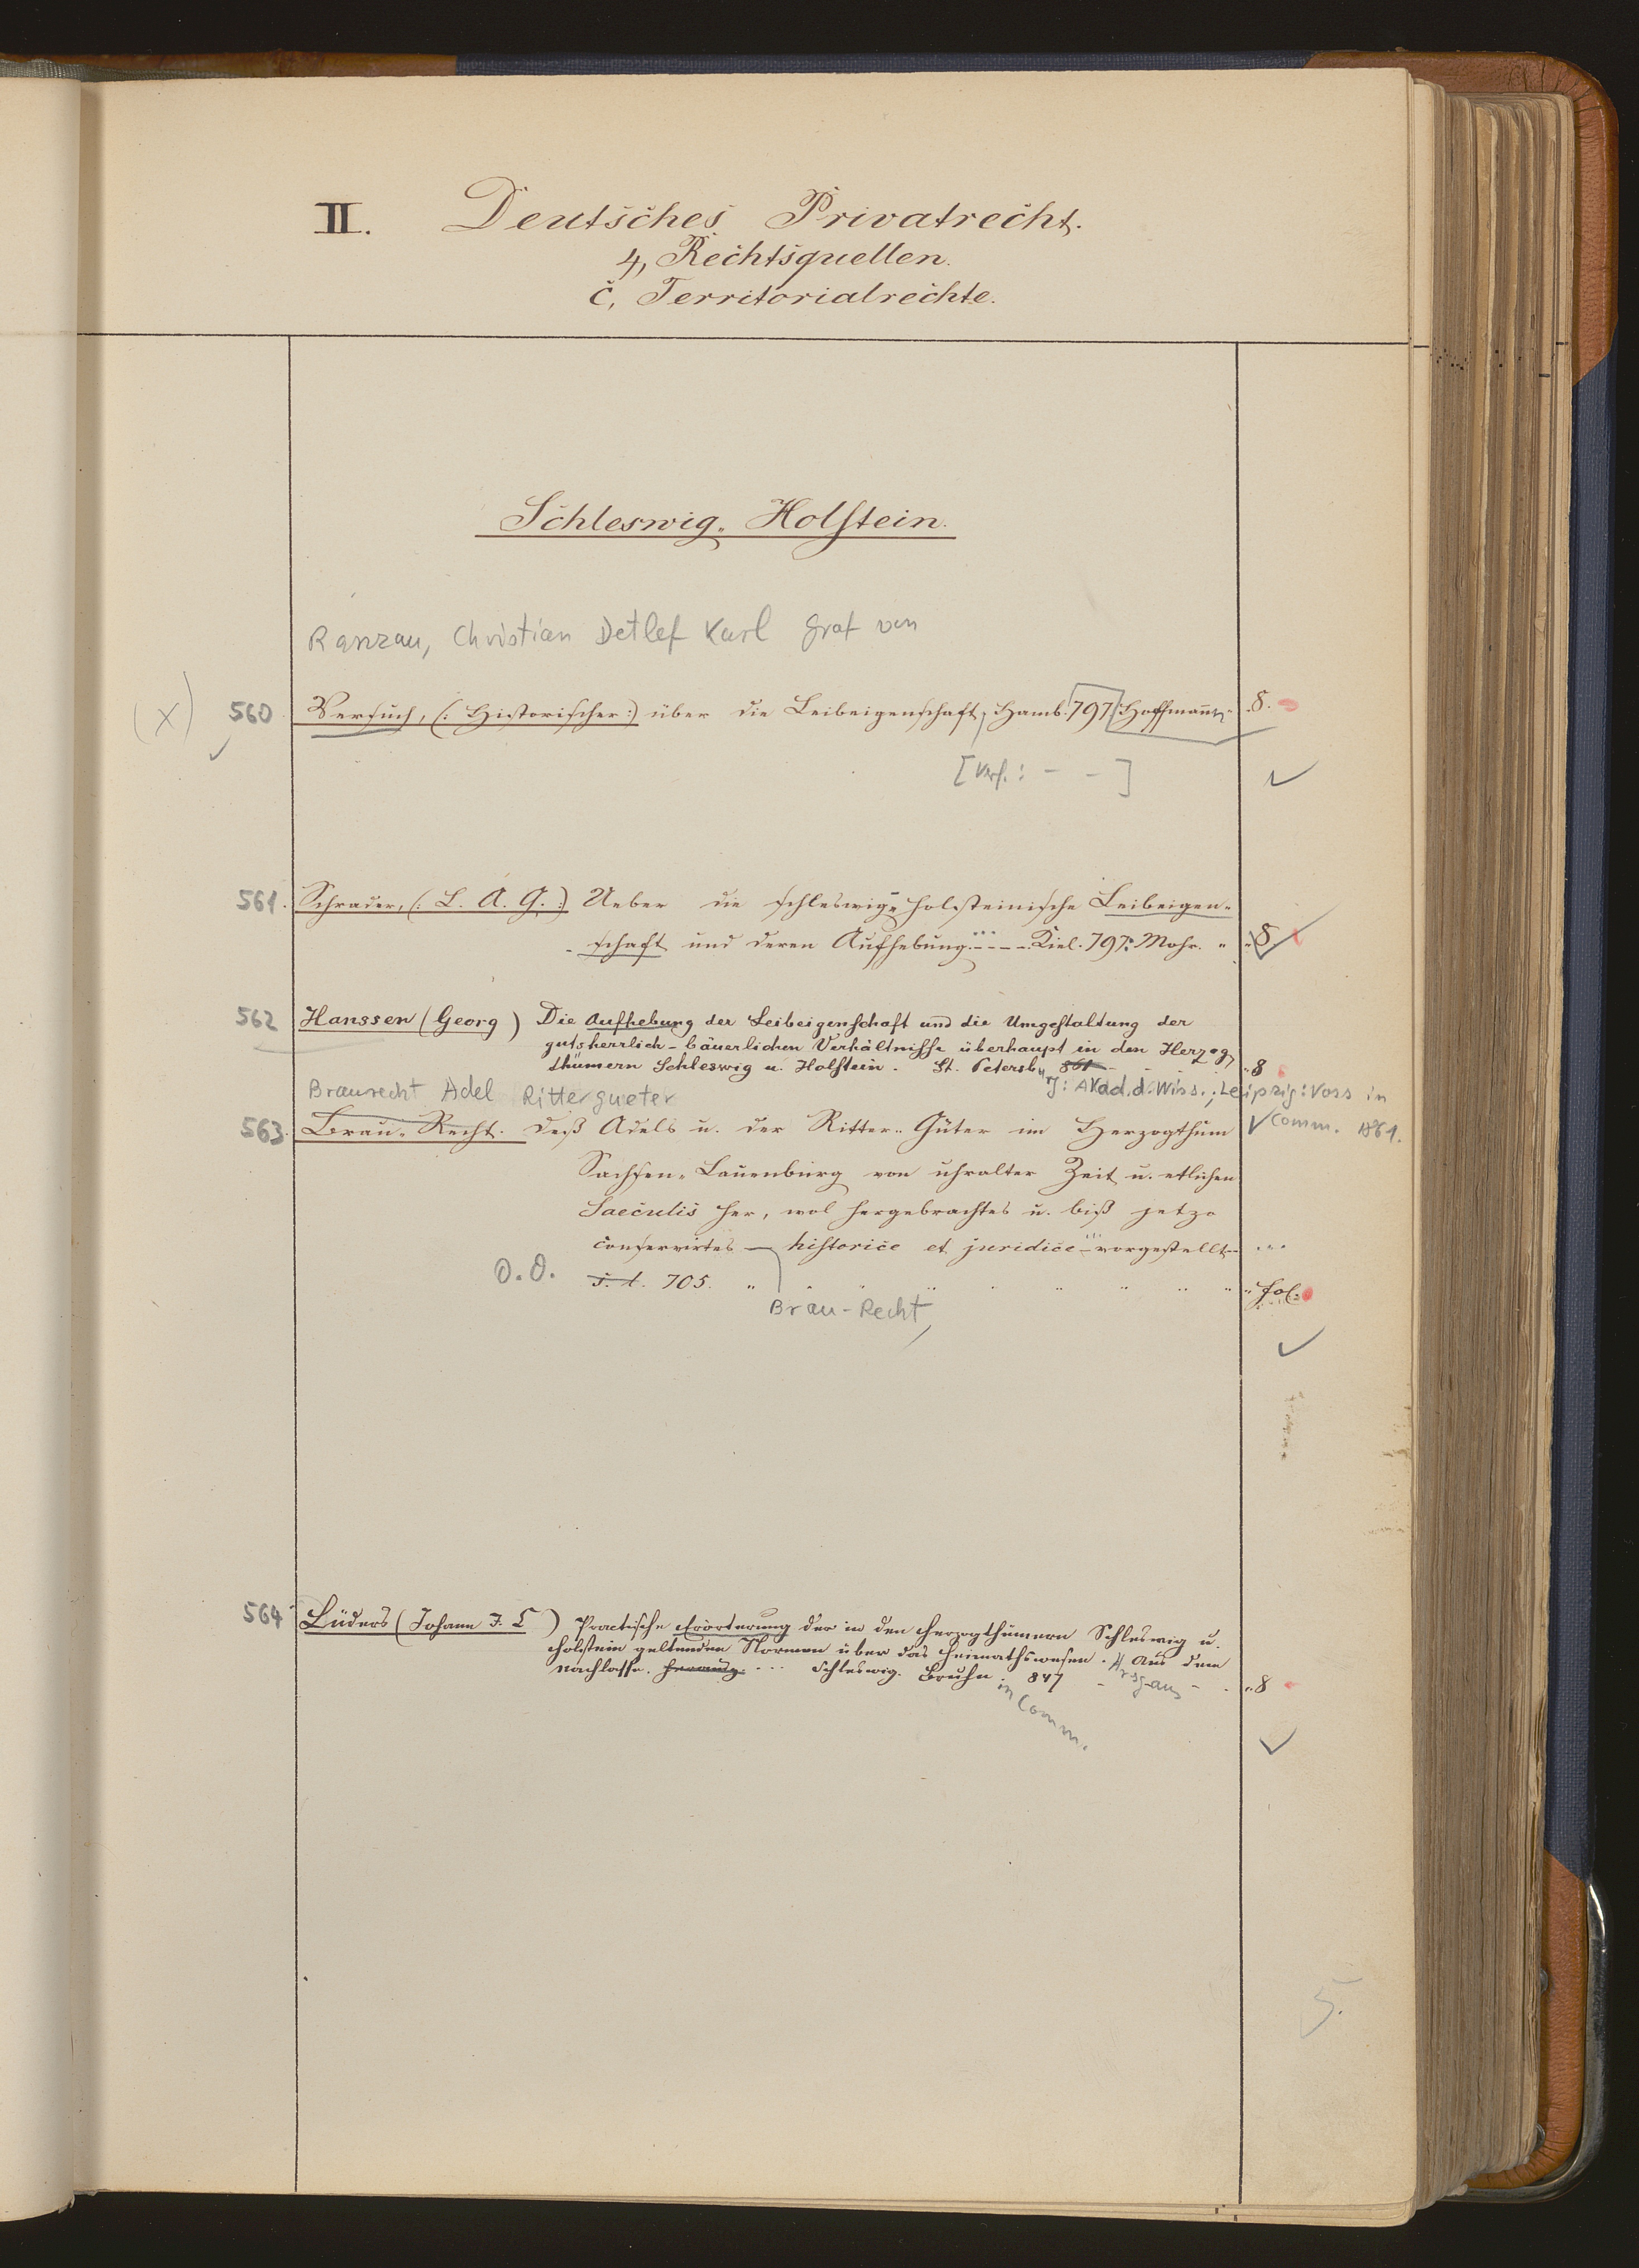 II. Deutsches Privatrecht.
4, Rechtsquellen.
c, Territorialrechte.
Schleswig-Holstein.
Ranzau, Christian Detlef Karl Graf von
(X) 560 Versuch, (: Historischer :) über die Leibeigenschaft, Hamb. 797 Hoffmann 8.
[Verf.: - - ]
561. Schrader, (: L. A. G. :) Ueber die schleswig-holsteinische Leibeigen-
schaft und deren Aufhebung. Kiel. 797. Mohr. 8.
562 Hanssen (Georg) Die Aufhebung der Leibeigenschaft und die Umgestaltung der
gutsherrlich-bäuerlichen Verhältnisse überhaupt in den Herzog-
thümern Schleswig u. Holstein. St. Petersb. 861 8
: Akad. d. Wiss.; Leipzig: Voss in
Comm. 1861.
Braurecht Adel Ritterqueter
563. Brau-Recht. deß Adels u. der Ritter-Güter im Herzogthum
Sachsen-Lauenburg von uhralter Zeit u. etlichen
Saeculis her, wol hergebrachtes u. biß jetzo
conservirtes — historice et juridice vorgestellt
O.O. s. l. 705. fol.
Brau-Recht,
564 Lüders (Johann J. C) Practische Erörterung der in den Herzogthümern Schleswig u.
Holstein geltenden Normen über das Heimathswesen. Aus dem
Nachlasse. Schleswig. Bruhn. 847 8
Hrsg aus
in Comm.
5.